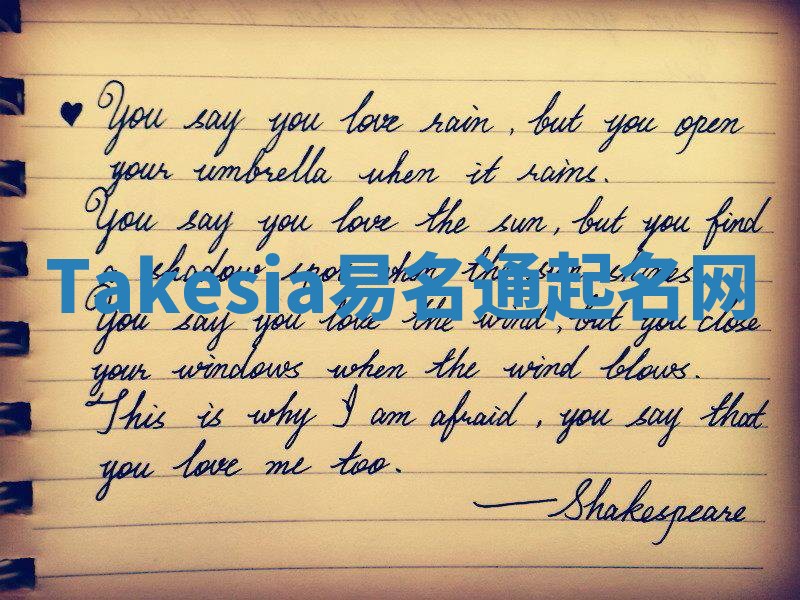 You say you love rain, but you open
your umbrella when it rains.
You say you love the sun, but you find
a shadow spot when the sun shines.
Takesia易名通起名网
You say you love the wind, but you close
your windows when the wind blows.
This is why I am afraid, you say that
you love me too.
—Shakespeare